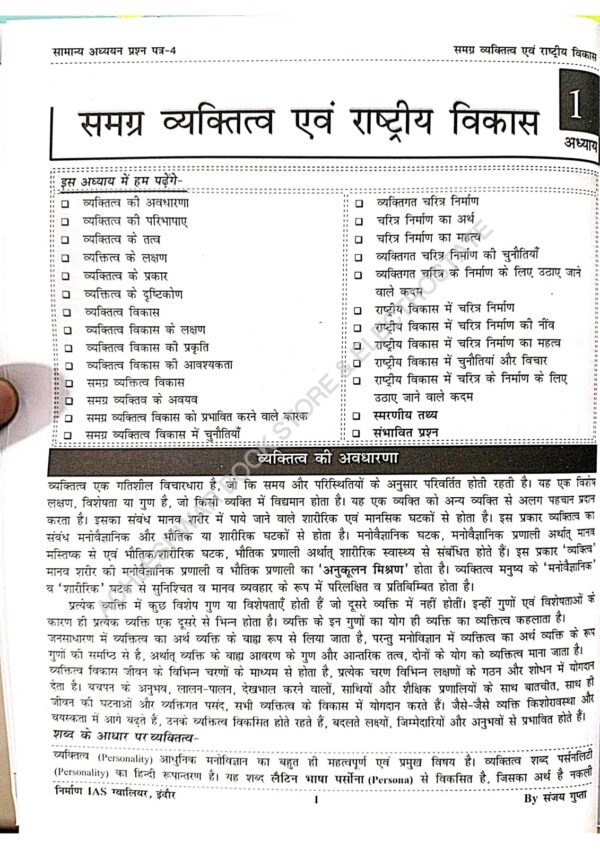 सामान्य अध्ययन प्रश्न पत्र-4
समग्र व्यक्तित्व एवं राष्ट्रीय विकास
समग्र व्यक्तित्व एवं राष्ट्रीय विकास
1
अध्याय
इस अध्याय में हम पढ़ेंगे-
व्यक्तित्व की अवधारणा
व्यक्तित्व की परिभाषाए
व्यक्तित्व के तत्व
व्यक्तित्व के लक्षण
व्यक्तित्व के प्रकार
व्यक्तित्व के दृष्टिकोण
व्यक्तित्व विकास
व्यक्तित्व विकास के लक्षण
व्यक्तित्व विकास की प्रकृति
व्यक्तित्व विकास की आवश्यकता
समग्र व्यक्तित्व विकास
समग्र व्यक्तिव के अवयव
समग्र व्यक्तित्व विकास को प्रभावित करने वाले कारक
समग्र व्यक्तित्व विकास में चुनौतियाँ
व्यक्तिगत चरित्र निर्माण
चरित्र निर्माण का अर्थ
चरित्र निर्माण का महत्व
व्यक्तिगत चरित्र निर्माण की चुनौतियाँ
व्यक्तिगत चरित्र के निर्माण के लिए उठाए जाने
वाले कदम
राष्ट्रीय विकास में चरित्र निर्माण
राष्ट्रीय विकास में चरित्र निर्माण की नींव
राष्ट्रीय विकास में चरित्र निर्माण का महत्व
राष्ट्रीय विकास में चुनौतियां और विचार
राष्ट्रीय विकास में चरित्र के निर्माण के लिए
उठाए जाने वाले कदम
स्मरणीय तथ्य
संभावित प्रश्न
व्यक्तित्व की अवधारणा
व्यक्तित्व एक गतिशील विचारधारा है, जो कि समय और परिस्थितियों के अनुसार परिवर्तित होती रहती है। यह एक विशेष
लक्षण, विशेषता या गुण है, जो किसी व्यक्ति में विद्यमान होता है। यह एक व्यक्ति को अन्य व्यक्ति से अलग पहचान प्रदान
करता है। इसका संबंध मानव शरीर में पाये जाने वाले शारीरिक एवं मानसिक घटकों से होता है। इस प्रकार व्यक्तित्व का
संबंध मनोवैज्ञानिक और भौतिक या शारीरिक घटकों से होता है। मनोवैज्ञानिक घटक, मनोवैज्ञानिक प्रणाली अर्थात् मानव
मस्तिष्क से एवं भौतिक/शारीरिक घटक, भौतिक प्रणाली अर्थात् शारीरिक स्वास्थ्य से संबंधित होते हैं। इस प्रकार 'व्यक्तित्व'
मानव शरीर की मनोवैज्ञानिक प्रणाली व भौतिक प्रणाली का 'अनुकूलन मिश्रण' होता है। व्यक्तित्व मनुष्य के 'मनोवैज्ञानिक'
व 'शारीरिक' घटक से सुनिश्चित व मानव व्यवहार के रूप में परिलक्षित व प्रतिबिम्बित होता है।
प्रत्येक व्यक्ति में कुछ विशेष गुण या विशेषताएँ होती हैं जो दूसरे व्यक्ति में नहीं होतीं। इन्हीं गुणों एवं विशेषताओं के
कारण ही प्रत्येक व्यक्ति एक दूसरे से भिन्न होता है। व्यक्ति के इन गुणों का योग ही व्यक्ति का व्यक्तित्व कहलाता है।
जनसाधारण में व्यक्तित्व का अर्थ व्यक्ति के बाह्य रूप से लिया जाता है, परन्तु मनोविज्ञान में व्यक्तित्व का अर्थ व्यक्ति के रूप
गुणों की समष्ठि से है, अर्थात् व्यक्ति के बाह्य आवरण के गुण और आन्तरिक तत्व, दोनों के योग को व्यक्तित्व माना जाता है।
व्यक्तित्व विकास जीवन के विभिन्न चरणों के माध्यम से होता है, प्रत्येक चरण विभिन्न लक्षणों के गठन और शोधन में योगदान
देता है। बचपन के अनुभव, लालन-पालन, देखभाल करने वालों, साथियों और शैक्षिक प्रणालियों के साथ बातचीत, साथ ही
जीवन की घटनाओं और व्यक्तिगत पसंद, सभी व्यक्तित्व के विकास में योगदान करते हैं। जैसे-जैसे व्यक्ति किशोरावस्था और
वयस्कता में आगे बढ़ते है, उनके व्यक्तित्व विकसित होते रहते हैं, बदलते लक्ष्यों, जिम्मेदारियों और अनुभवों से प्रभावित होते हैं।
शब्द के आधार पर व्यक्तित्व-
व्यक्तित्व (Personality) आधुनिक मनोविज्ञान का बहुत ही महत्वपूर्ण एवं प्रमुख विषय है। व्यक्तित्व शब्द पर्सनलिटी
(Personality) का हिन्दी रूपान्तरण है। यह शब्द लैटिन भाषा पर्सोना (Persona) से विकसित है, जिसका अर्थ है नकली
निर्माण IAS ग्वालियर, इंदौर
1
By संजय गुप्ता